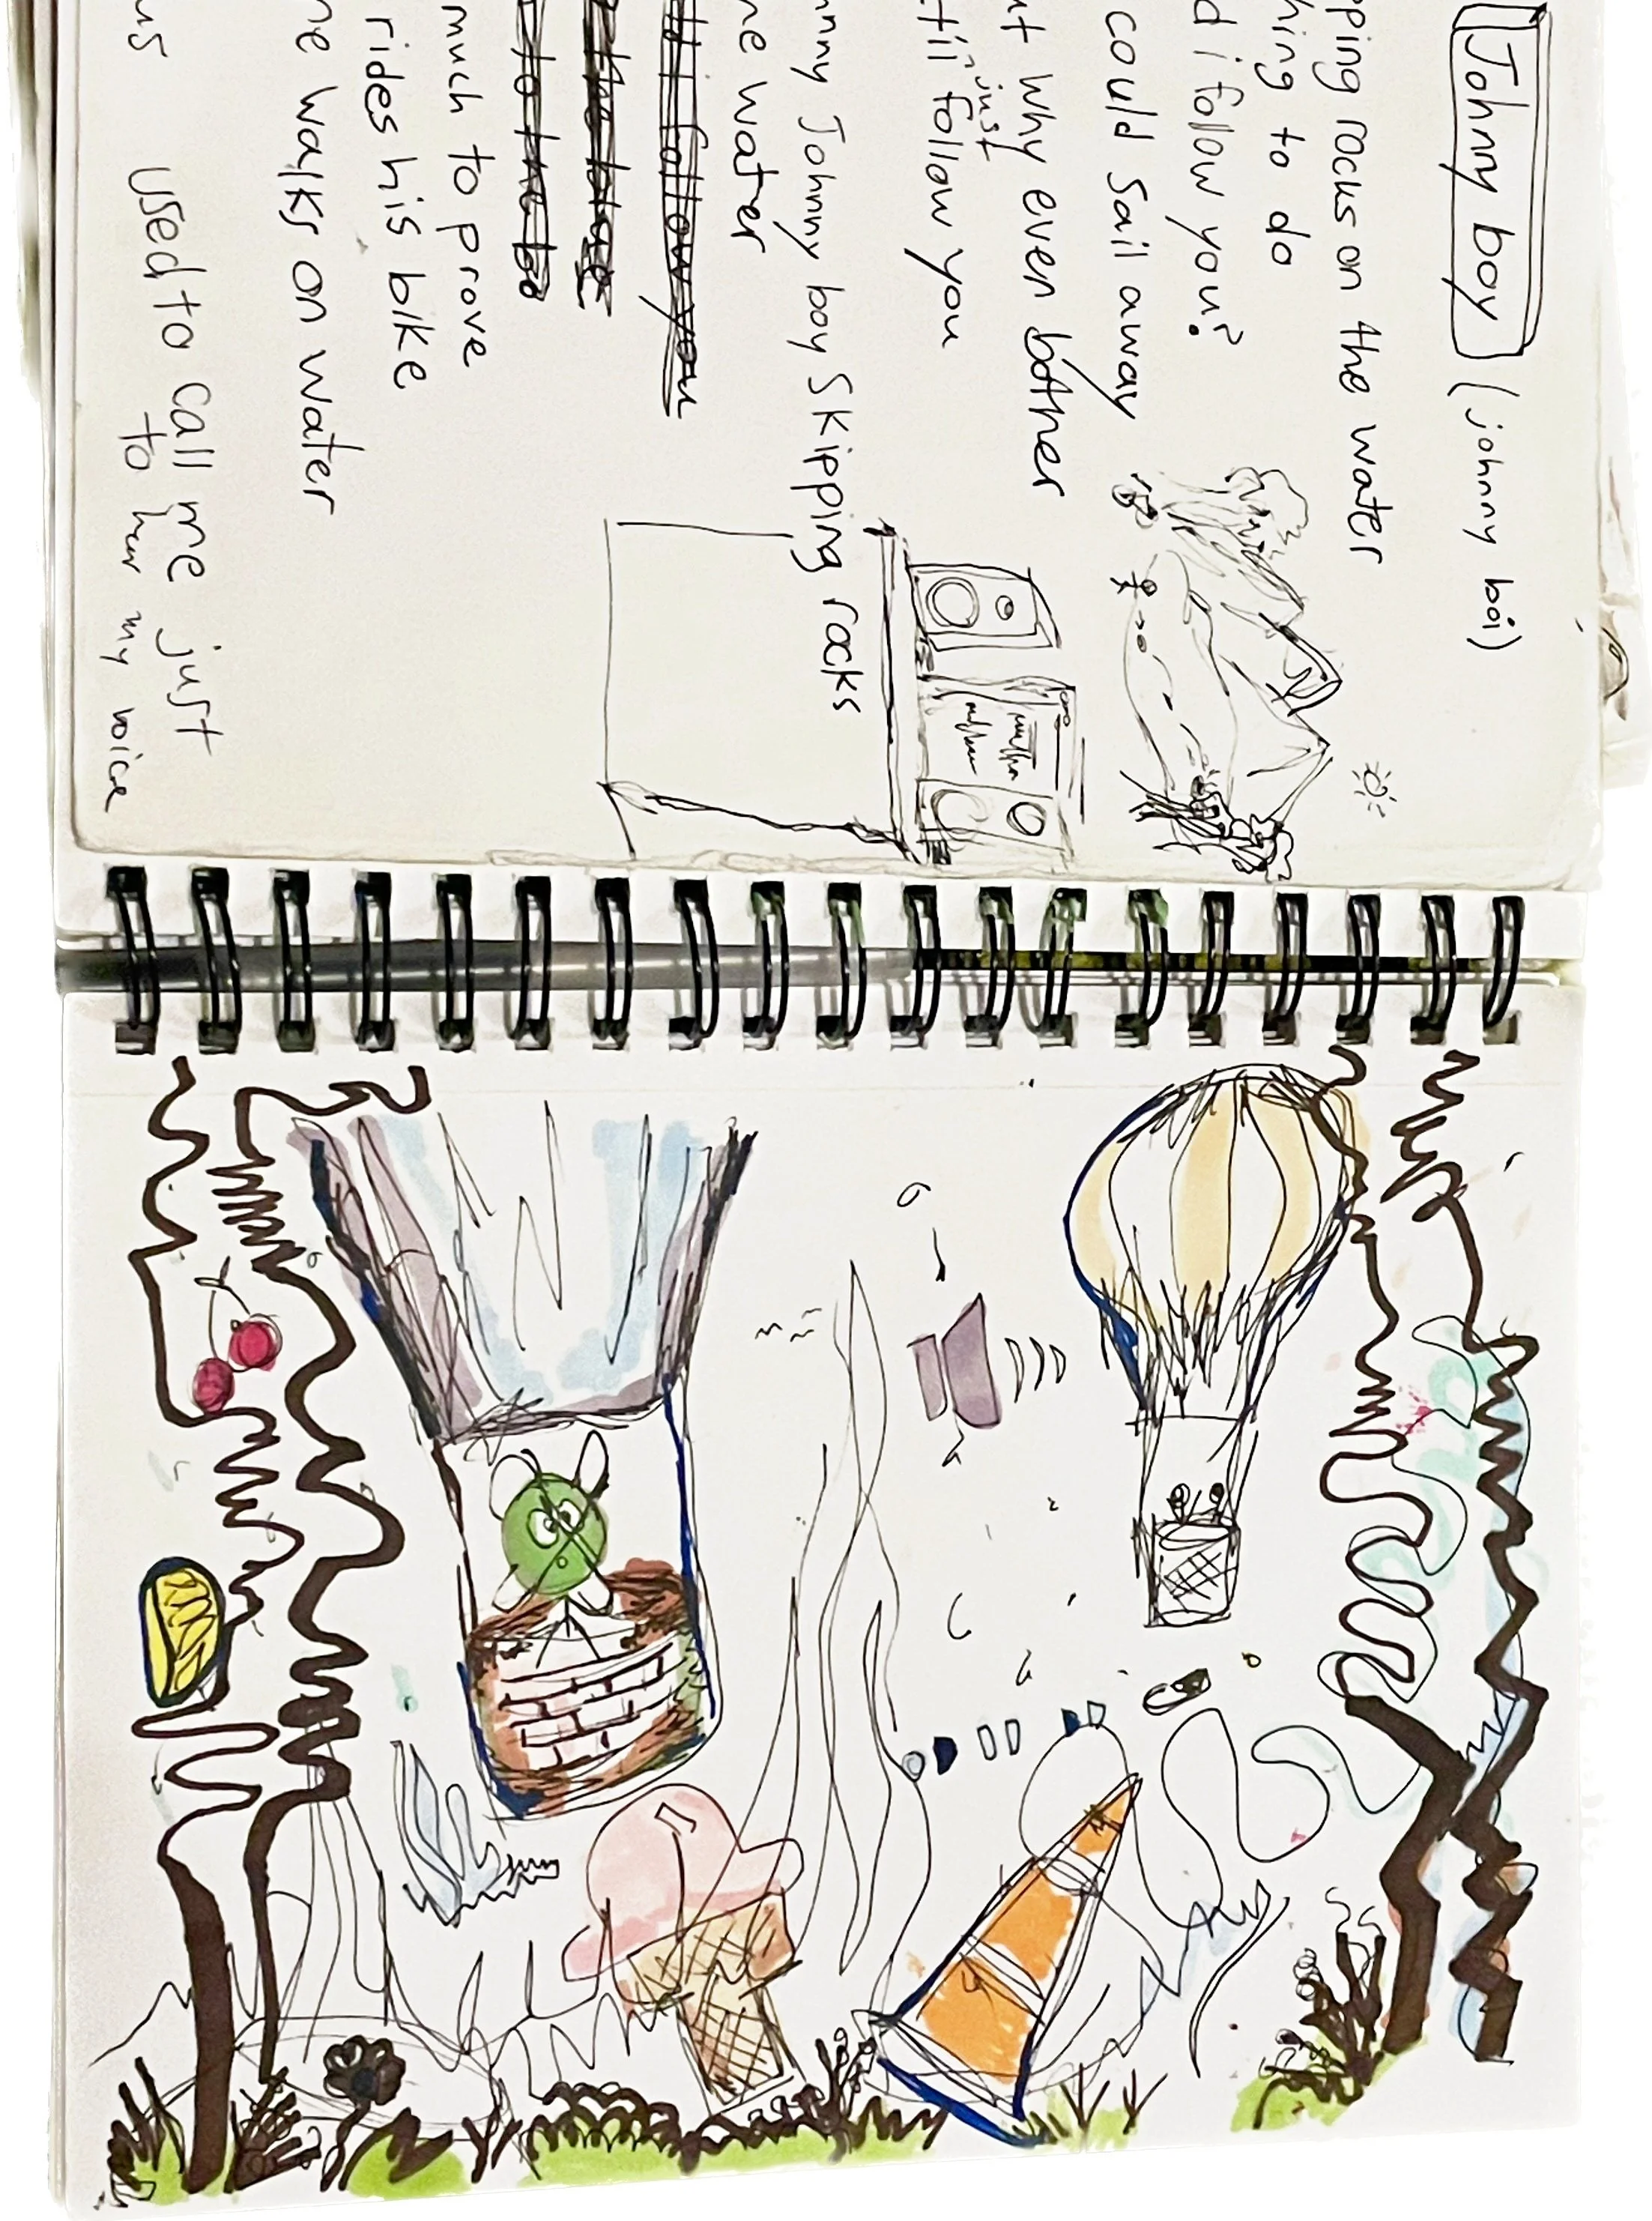 Johnny boy (johnny boi)
pping rocks on the water
hing to do
d i follow you?
could sail away
ut why even bother
till just follow you
nny Johnny boy Skipping rocks
he water
till follow you
to the bo
much to prove
rides his bike
he walks on water
us used to call me just
to hear my voice